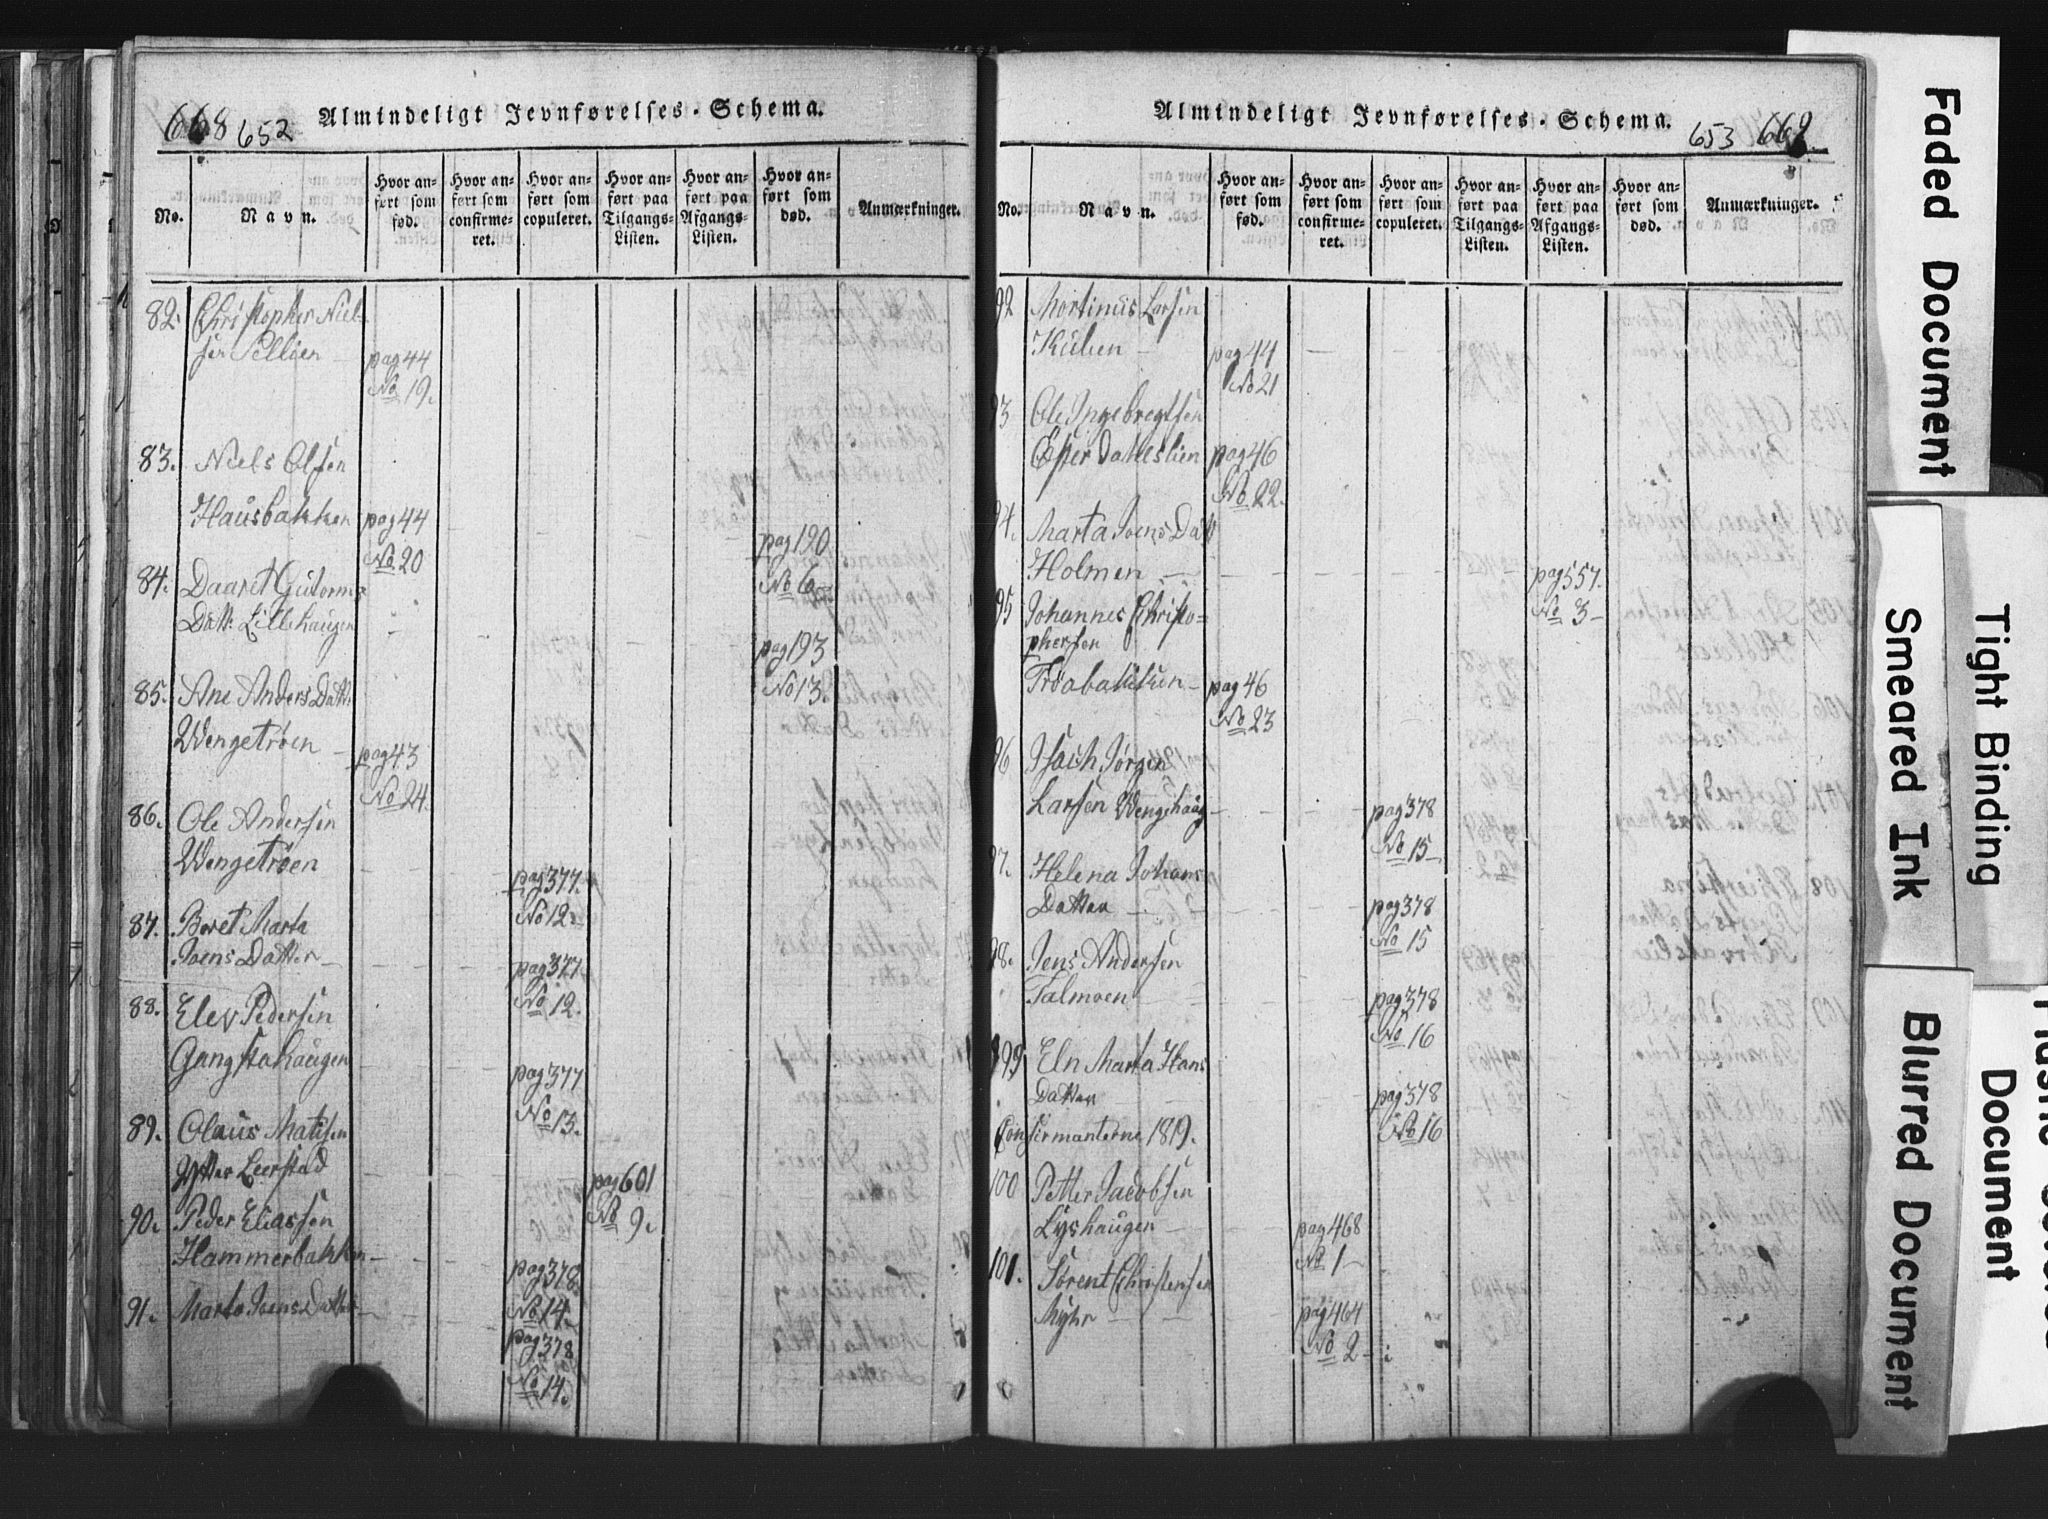 668 652
Almindeligt Jevnførelses-Schema.
No.
Navn.
Hvor an-
ført som
fød.
Hvor an-
ført som
confirme-
ret.
Hvor an-
ført som
copuleret.
Hvor an-
ført paa
Tilgangs-
Listen.
Hvor an-
ført paa
Afgangs-
Listen.
Hvor an-
ført som
død.
Anmærkninger.
82. Christopher Niel-
sen Sellien - pag 44
No 19.
83. Niels Olsen
Hausbakken pag 44
No 20
pag 190
No 6
84. Daaret Gutorms
Datt. Lillehaugen
pag 193
No 13.
85. Ane Anders Datt.
Wengetrøen - pag 43
No 24.
86. Ole Andersen
Wengetrøen
pag 377.
No 12
87. Beret Marta
Joens Datter
pag 377.
No 12.
88. Elev Pedersen
Gangstahaugen
pag 377
No 13.
89. Olaus Matisen
Ytter Leerstad
pag 601
No 9.
90. Peder Eliassen
Hammerbakken
pag 378
No 14.
91. Marta Joens Datter
pag 378
No 14.
Almindeligt Jevnførelses-Schema.
653 669.
No.
Navn.
Hvor an-
ført som
fød.
Hvor an-
ført som
confirme-
ret.
Hvor an-
ført som
copuleret.
Hvor an-
ført paa
Tilgangs-
Listen.
Hvor an-
ført paa
Afgangs-
Listen.
Hvor an-
ført som
død.
Anmærkninger.
92 Mortinus Larsen
Kulien - pag 44
No 21
93 Ole Ingebregtsen
Østier Dahlslien pag 46
No 22.
94. Marta Joens Datt
Holmen
pag 557.
No 3
95 Johannes Christo=
phersen
Trøabakken - pag 46
No 23
96 Isach Jørgen
Larsen Wengehaug
pag 378
No 15
97. Helena Johans
Datter
pag 378
No 15
98. Jens Andersen
Talmoen
pag 378
No 16
99 Eln Marta Hans
Datter
pag 378
No 16
Confirmanterne 1819.
100 Petter Jacobsen
Lyshaugen
pag 468
No 1
101. Sørent Christensen
Myhr
pag 464
No 2
Faded Document
Tight Binding
Smeared Ink
Blurred Document
Document